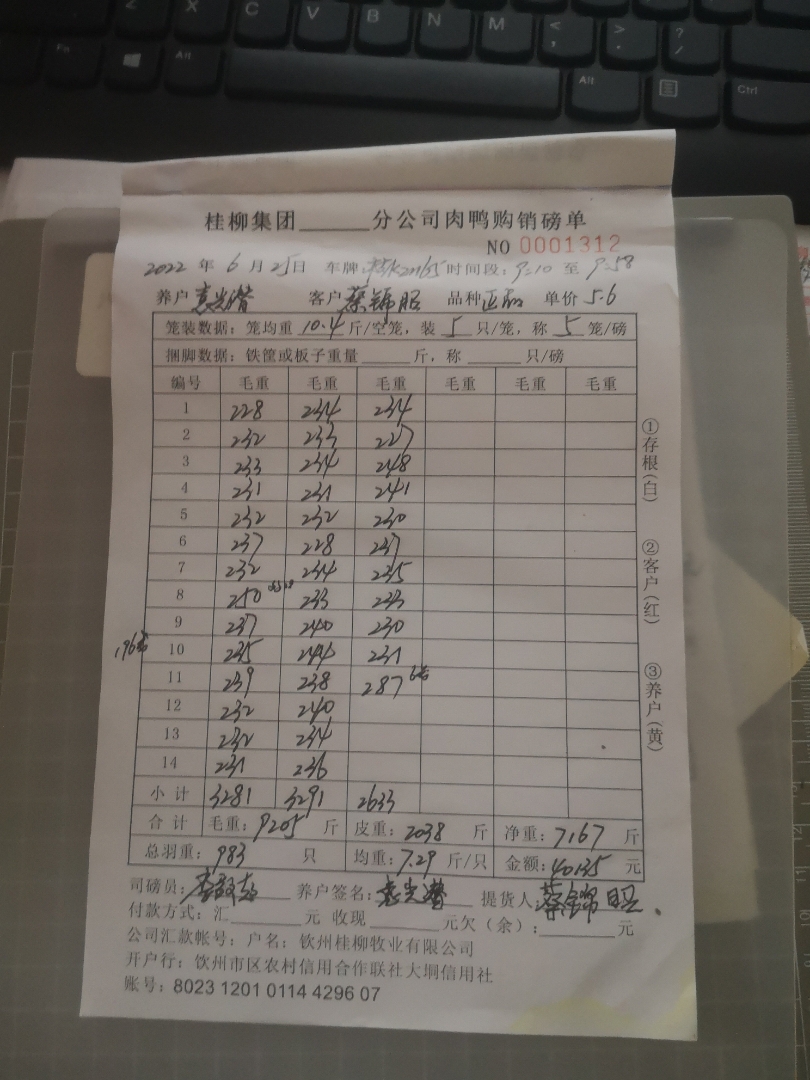 桂柳集团______分公司肉鸭购销磅单
NO 0001312
2022 年 6 月 25日 车牌: 时间段: 9:10 至 9:58
养户 袁光潜 客户 蔡锦昭 品种 正品 单价 5.6
笼装数据: 笼均重 10.4 斤/空笼, 装 5 只/笼, 称 5 笼/磅
捆脚数据: 铁筐或板子重量______斤, 称______只/磅
编号 毛重 毛重 毛重 毛重 毛重 毛重
1 228 234 234
2 232 233 227
3 233 234 248
4 231 231 241
5 232 232 230
6 237 228 237
7 232 234 235
8 250 233 233
9 237 240 230
196笼 10 235 244 231
11 239 238 287 6笼
12 232 240
13 232 234
14 231 236
小计 3281 3291 2633
合计 毛重: 9205 斤 皮重: 2038 斤 净重: 7167 斤
总羽重: 983 只 均重: 7.29 斤/只 金额: 40135 元
司磅员: 养户签名: 袁光潜 提货人: 蔡锦昭
付款方式: 汇______元 收现______元欠(余):______元
公司汇款帐号: 户名: 钦州桂柳牧业有限公司
开户行: 钦州市区农村信用合作联社大垌信用社
账号: 8023 1201 0114 4296 07
①存根(白)
②客户(红)
③养户(黄)
Z X C V B N M < , > . ? /
Fn Alt Alt Ctrl